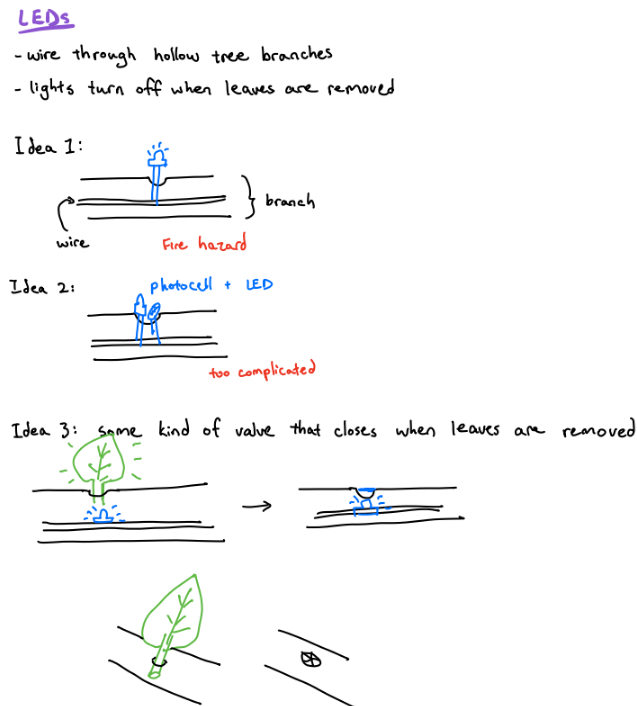 LEDs
- wire through hollow tree branches
- lights turn off when leaves are removed
Idea 1:
branch
wire
Fire hazard
Idea 2:
photocell + LED
too complicated
Idea 3: some kind of value that closes when leaves are removed